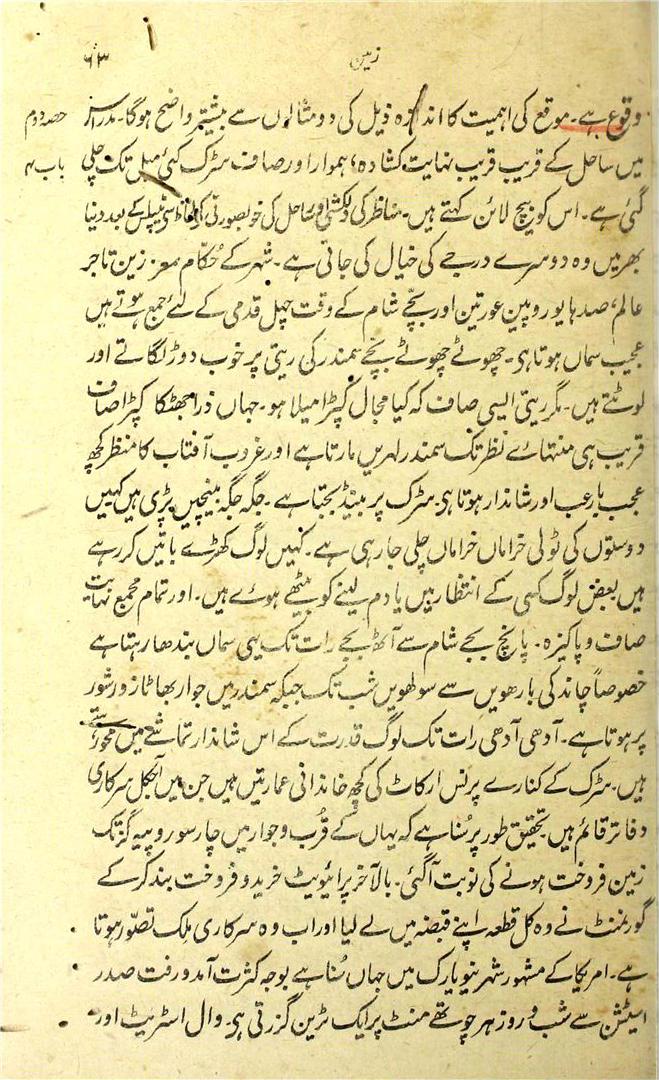 زمین
۶۳
حصہ دوم
باب ۴
وقوع ہے۔ موقع کی اہمیت کا اندازہ ذیل کی دو مثالوں سے بیشتر واضح ہوگا۔ مدراس
میں ساحل کے قریب قریب نہایت کشادہ، ہموار اور صاف سڑک کئی میل تک چلی
گئی ہے۔ اس کو بیچ لائن کہتے ہیں۔ مناظر کی دلکشی اور ساحل کی خوبصورتی کے لحاظ سے نیپلس کے بعد دنیا
بھر میں وہ دوسرے درجے کی خیال کی جاتی ہے۔ شہر کے حُکّام معززین تاجر
عالم، صدہا یوروپین عورتیں اور بچے شام کے وقت چہل قدمی کے لئے جمع ہوتے ہیں
عجیب سماں ہوتا ہی۔ چھوٹے چھوٹے بچے سمندر کی ریتی پر خوب دوڑ لگاتے اور
لوٹتے ہیں۔ مگر ریتی ایسی صاف کہ کیا مجال کپڑا میلا ہو۔ جہاں ذرا جھٹکا کپڑا صاف
قریب ہی منتہائے نظر تک سمندر لہریں مارتا ہے اور غروب آفتاب کا منظر کچھ
عجب بارعب اور شاندار ہوتا ہی۔ سڑک پر بینڈ بجتا ہے۔ جگہ جگہ بینچیں پڑی ہیں کہیں
دوستوں کی ٹولی خراماں خراماں چلی جا رہی ہے۔ کہیں لوگ کھڑے باتیں کر رہے
ہیں بعض لوگ کسی کے انتظار میں یا دم لینے کو بیٹھے ہوئے ہیں۔ اور تمام مجمع نہایت
صاف و پاکیزہ۔ پانچ بجے شام سے آٹھ بجے رات تک یہی سماں بندھا رہتا ہے
خصوصاً چاند کی بارھویں سے سولھویں شب تک جبکہ سمندر میں جوار بھاٹا زور شور
پر ہوتا ہے۔ آدھی آدھی رات تک لوگ قدرت کے اس شاندار تماشے میں محو رہتے
ہیں۔ سڑک کے کنارے پرنس ارکاٹ کی کچھ خاندانی عمارتیں ہیں جن میں آجکل سرکاری
دفاتر قائم ہیں۔ تحقیق طور پر سُنا ہے کہ یہاں کے قُرب و جوار میں چار سو روپیہ گز تک
زمین فروخت ہونے کی نوبت آگئی۔ بالآخر پرائیویٹ خرید و فروخت بند کر کے
گورنمنٹ نے وہ کل قطعہ اپنے قبضہ میں لے لیا اور اب وہ سرکاری ملک تصوّر ہوتا
ہے۔ امریکا کے مشہور شہر نیویارک میں جہاں سُنا ہے بوجہ کثرت آمد و رفت صدر
اسٹیشن سے شب و روز ہر چوتھے منٹ پر ایک ٹرین گزرتی ہی۔ وال اسٹریٹ اور